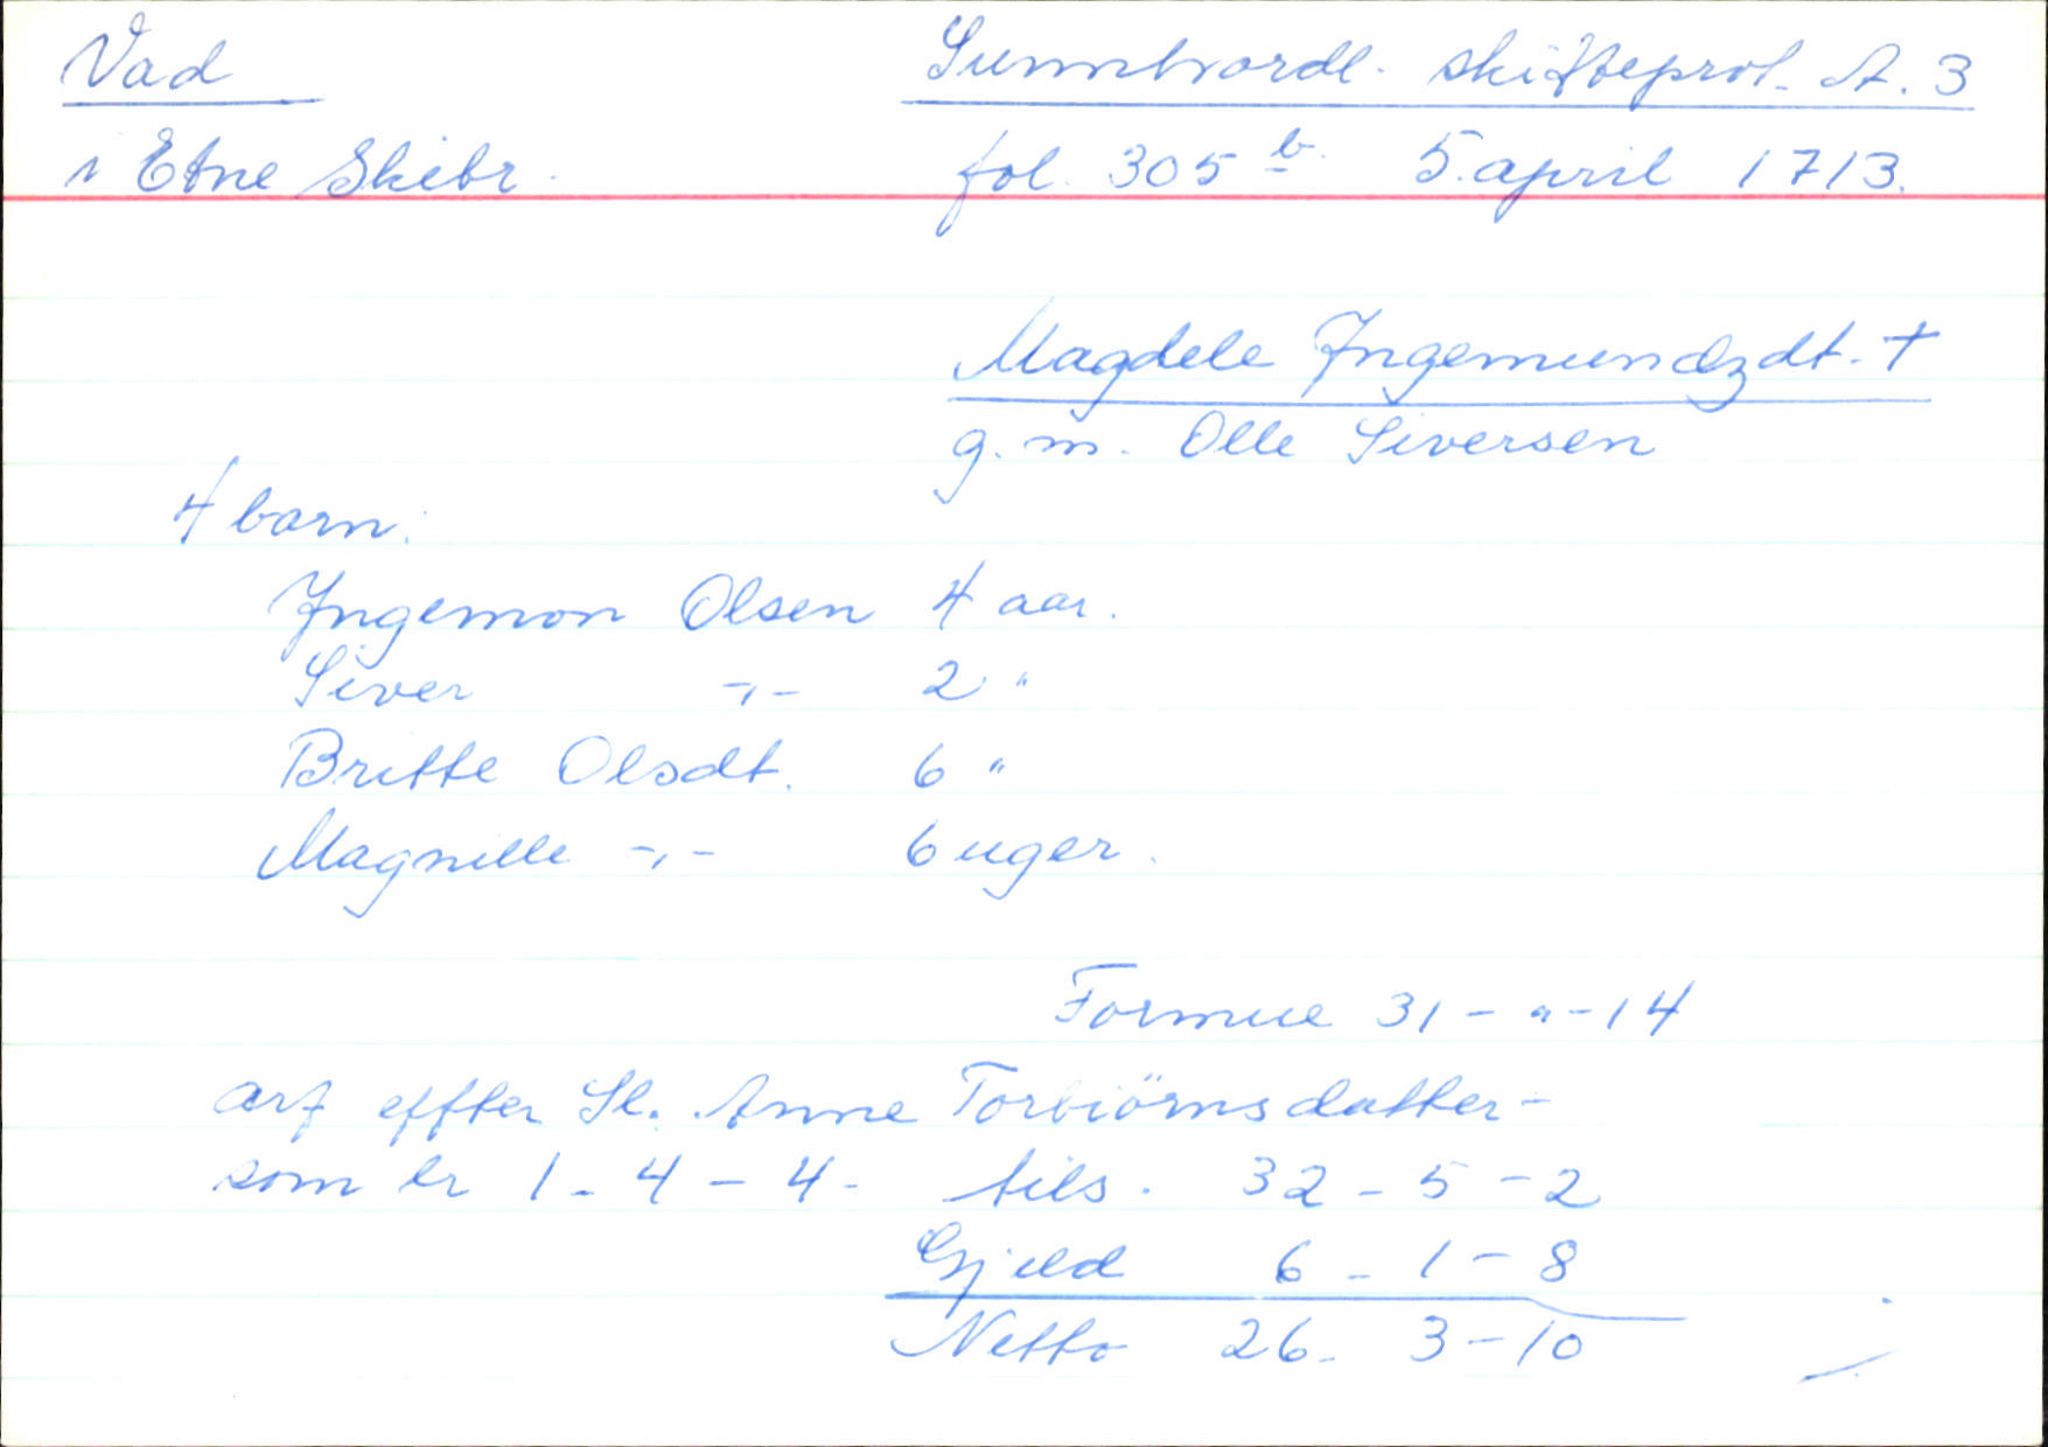 Vad Sunnhordl. skifteprot. A. 3
i Etne Skibr. fol. 305 b. 5. april 1713.
Magdele Ingemundzdt. †
g. m. Olle Siversen
4 barn:
Ingemon Olsen 4 aar.
Siver -"- 2 "
Britte Olsdt. 6 "
Magnille -"- 6 uger.
Formue 31 - " - 14
arf effter Sl. Anne Torbiörnsdatter -
som er 1 - 4 - 4 - tils. 32 - 5 - 2
Gjeld 6 - 1 - 8
Netto 26 - 3 - 10